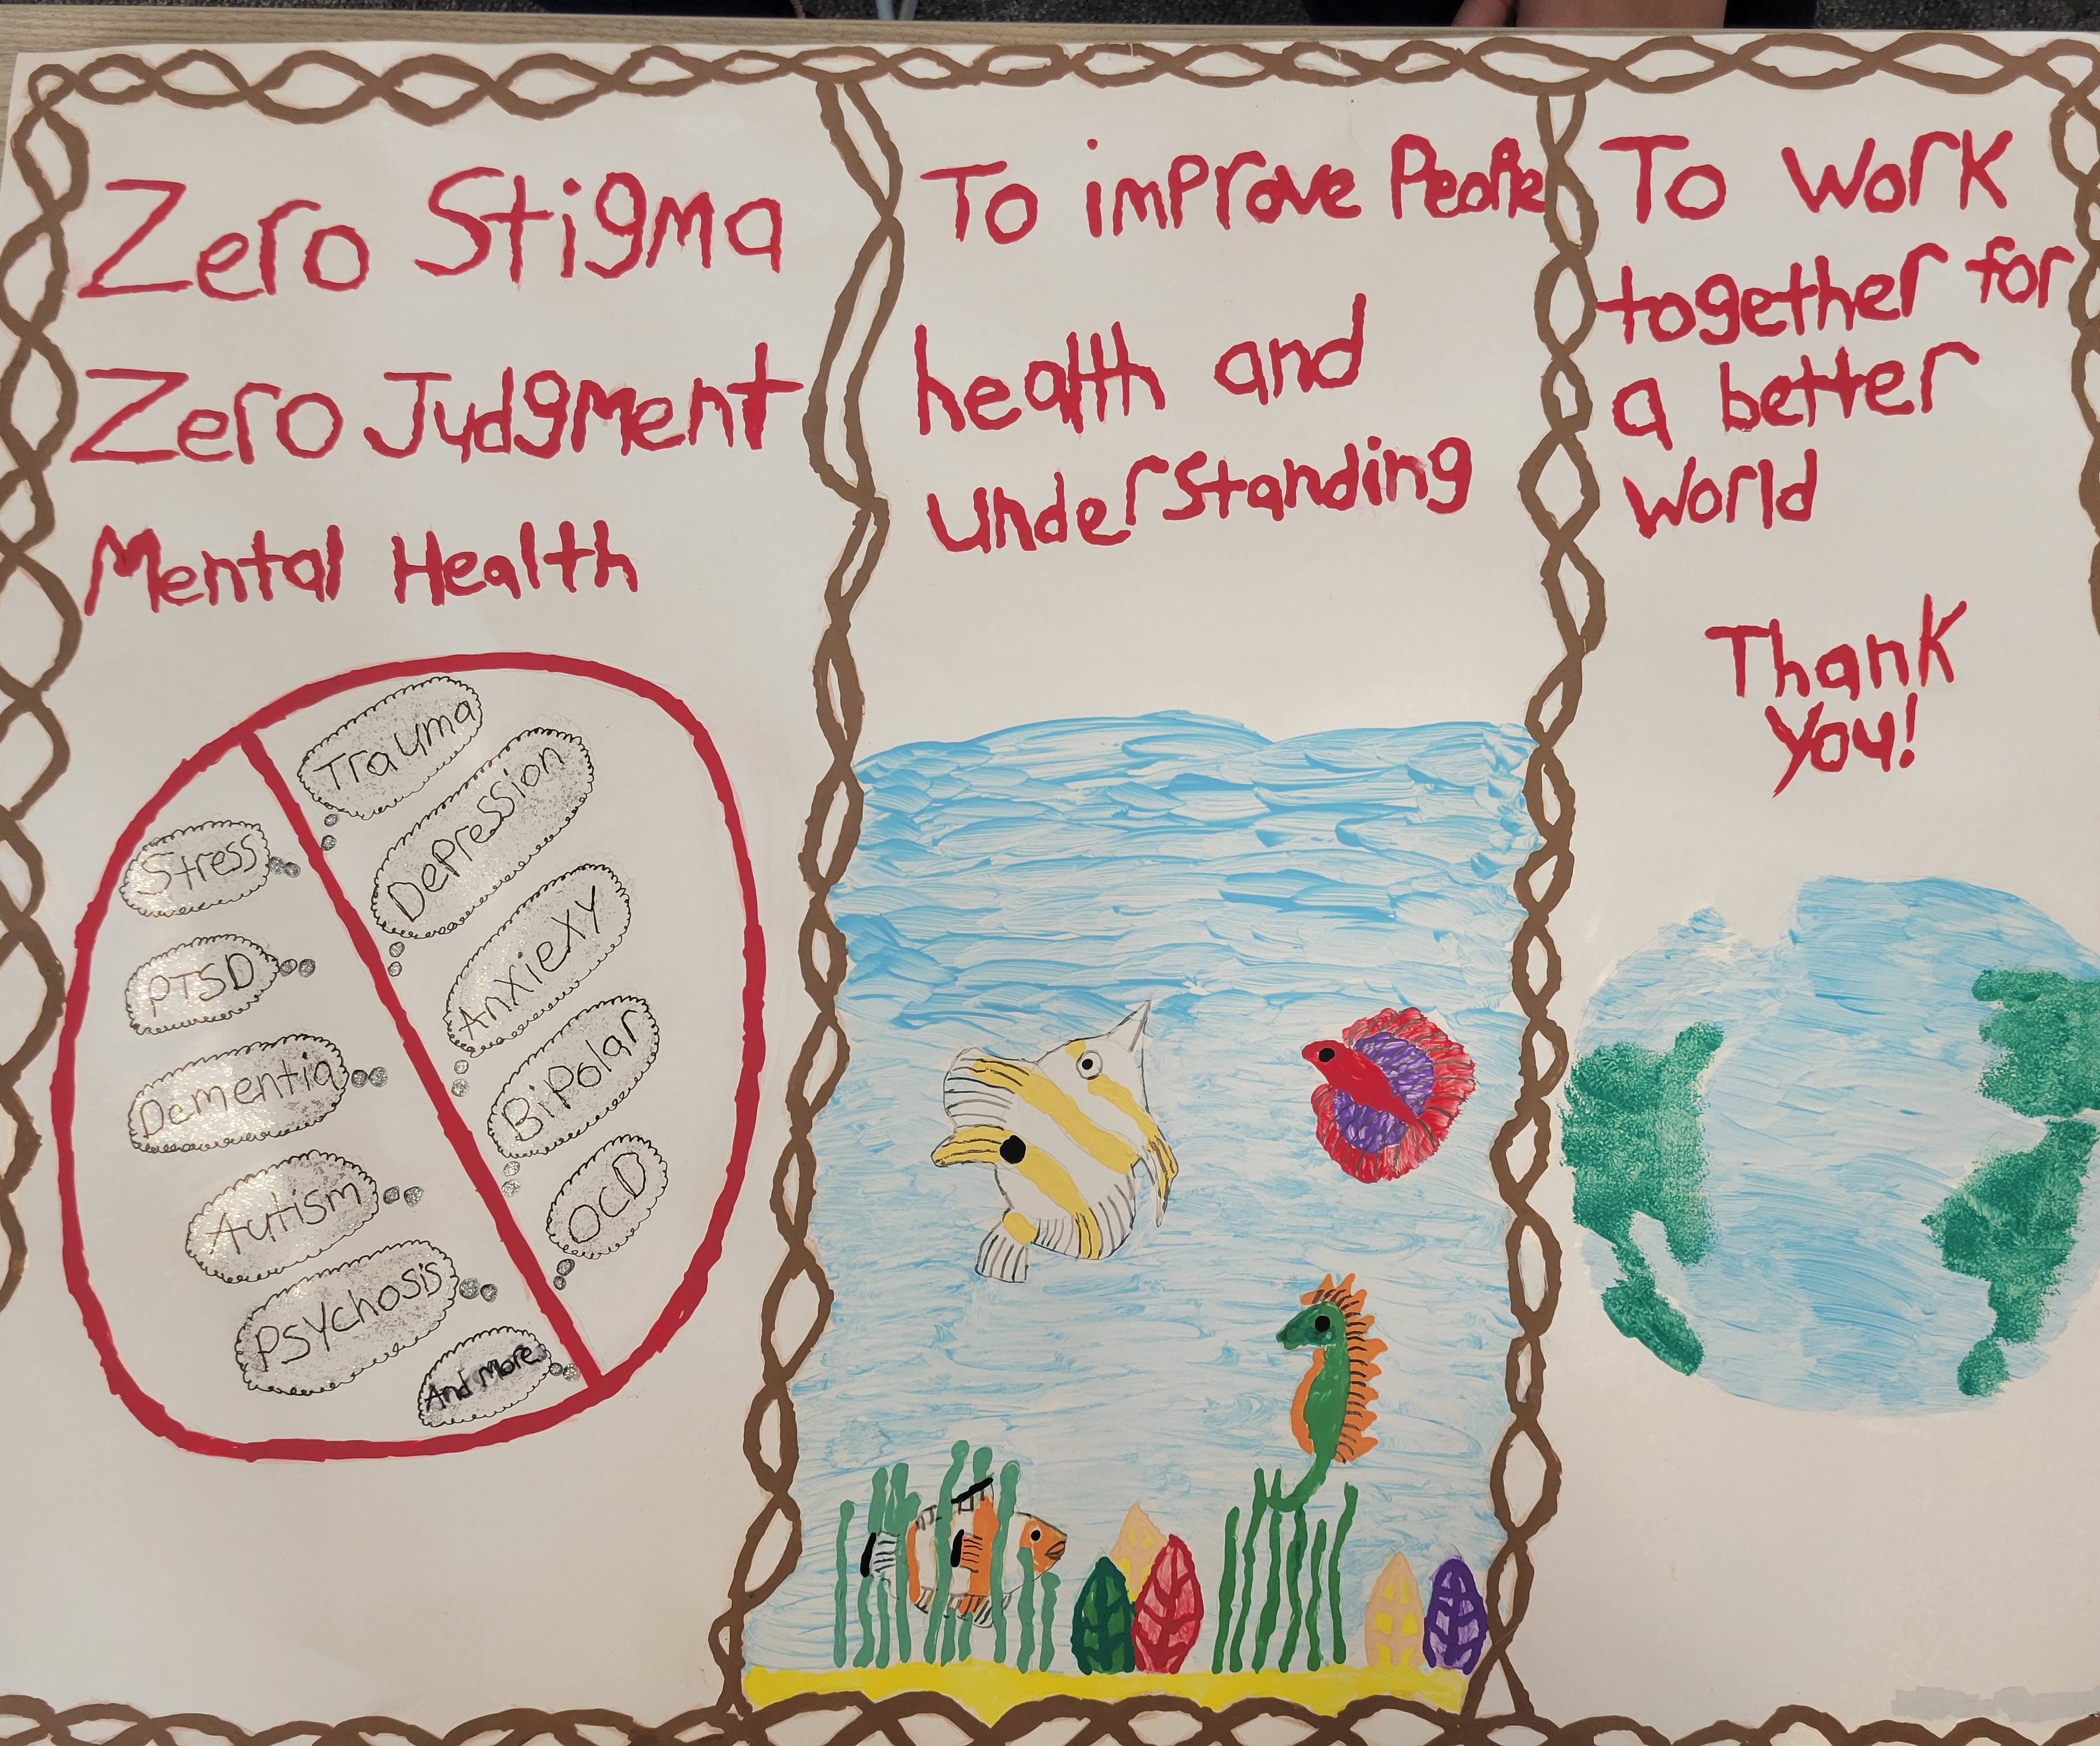 Zero Stigma
Zero Judgment
Mental Health
Trauma
Depression
Anxiexy
Bipolar
OCD
Stress
PTSD
Dementia
Autism
Psychosis
And More
To improve People
health and
understanding
To Work
together for
a better
World
Thank
You!